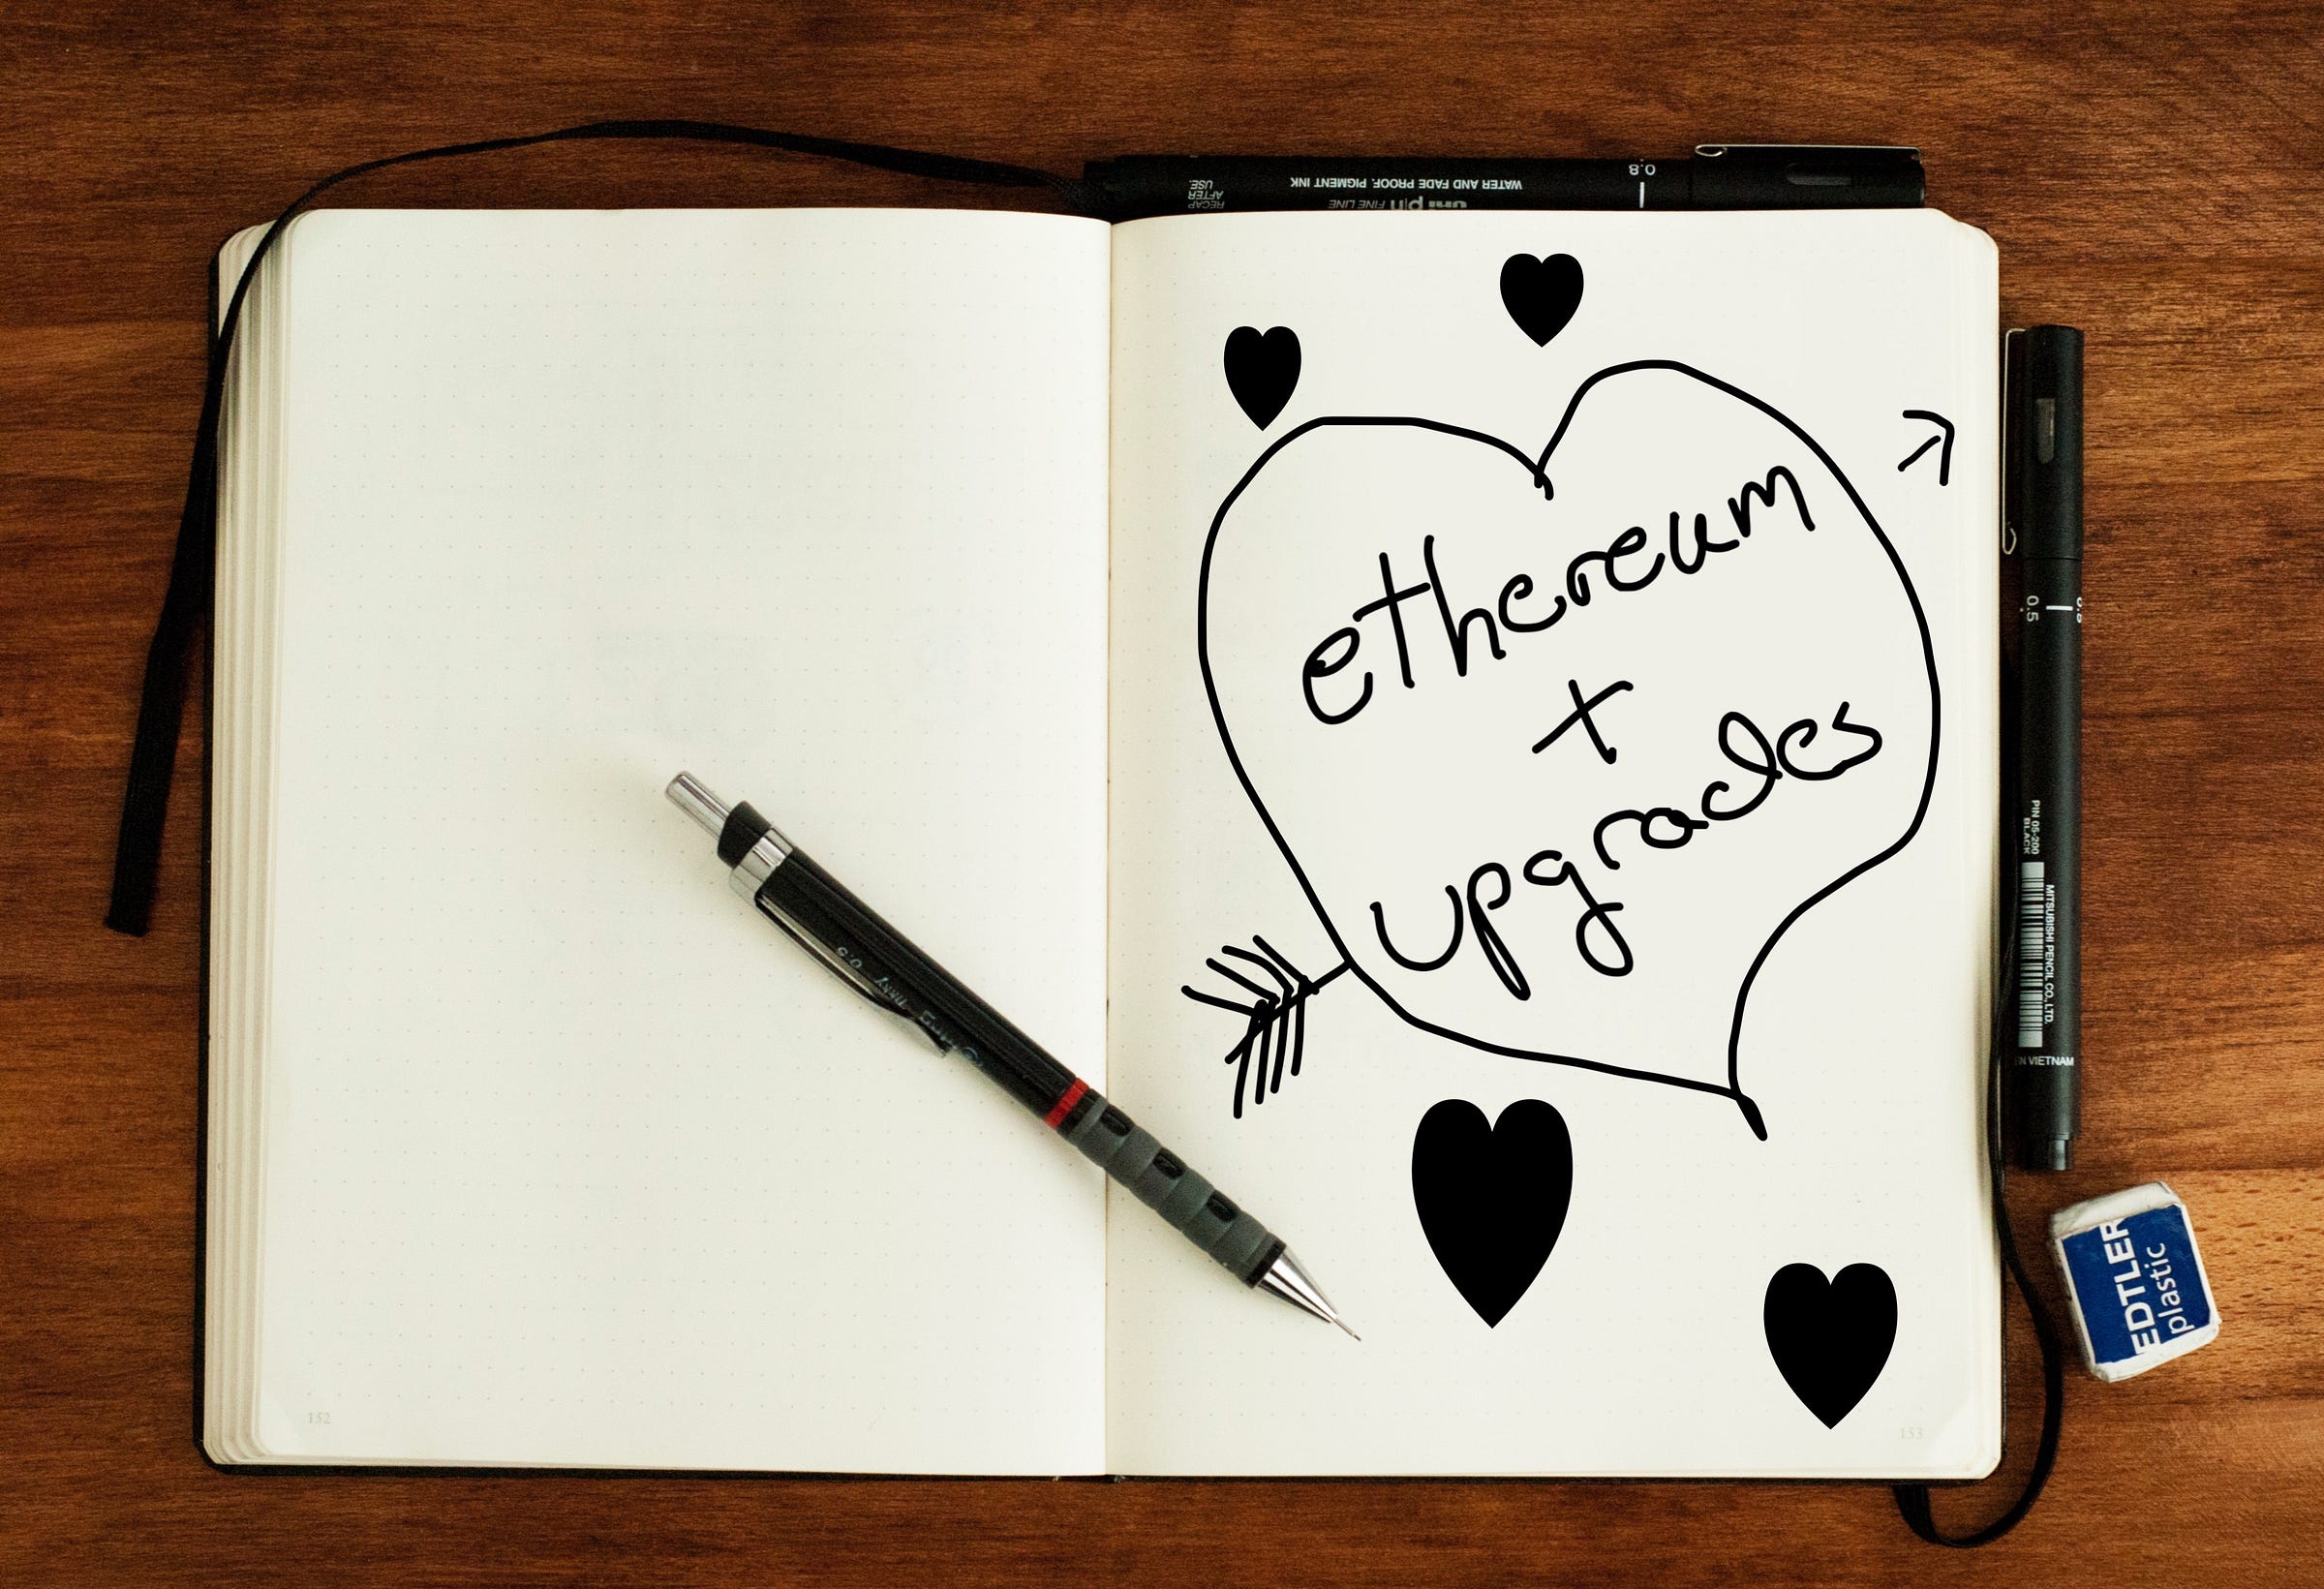 RECAP
AFTER
USE.
uni pin FINE LINE
WATER AND FADE PROOF, PIGMENT INK
0.8
ethereum
+
upgrades
0.5
PIN 05-200
BLACK
MITSUBISHI PENCIL CO., LTD.
N VIETNAM
0.5
EDTLER
plastic
152
153